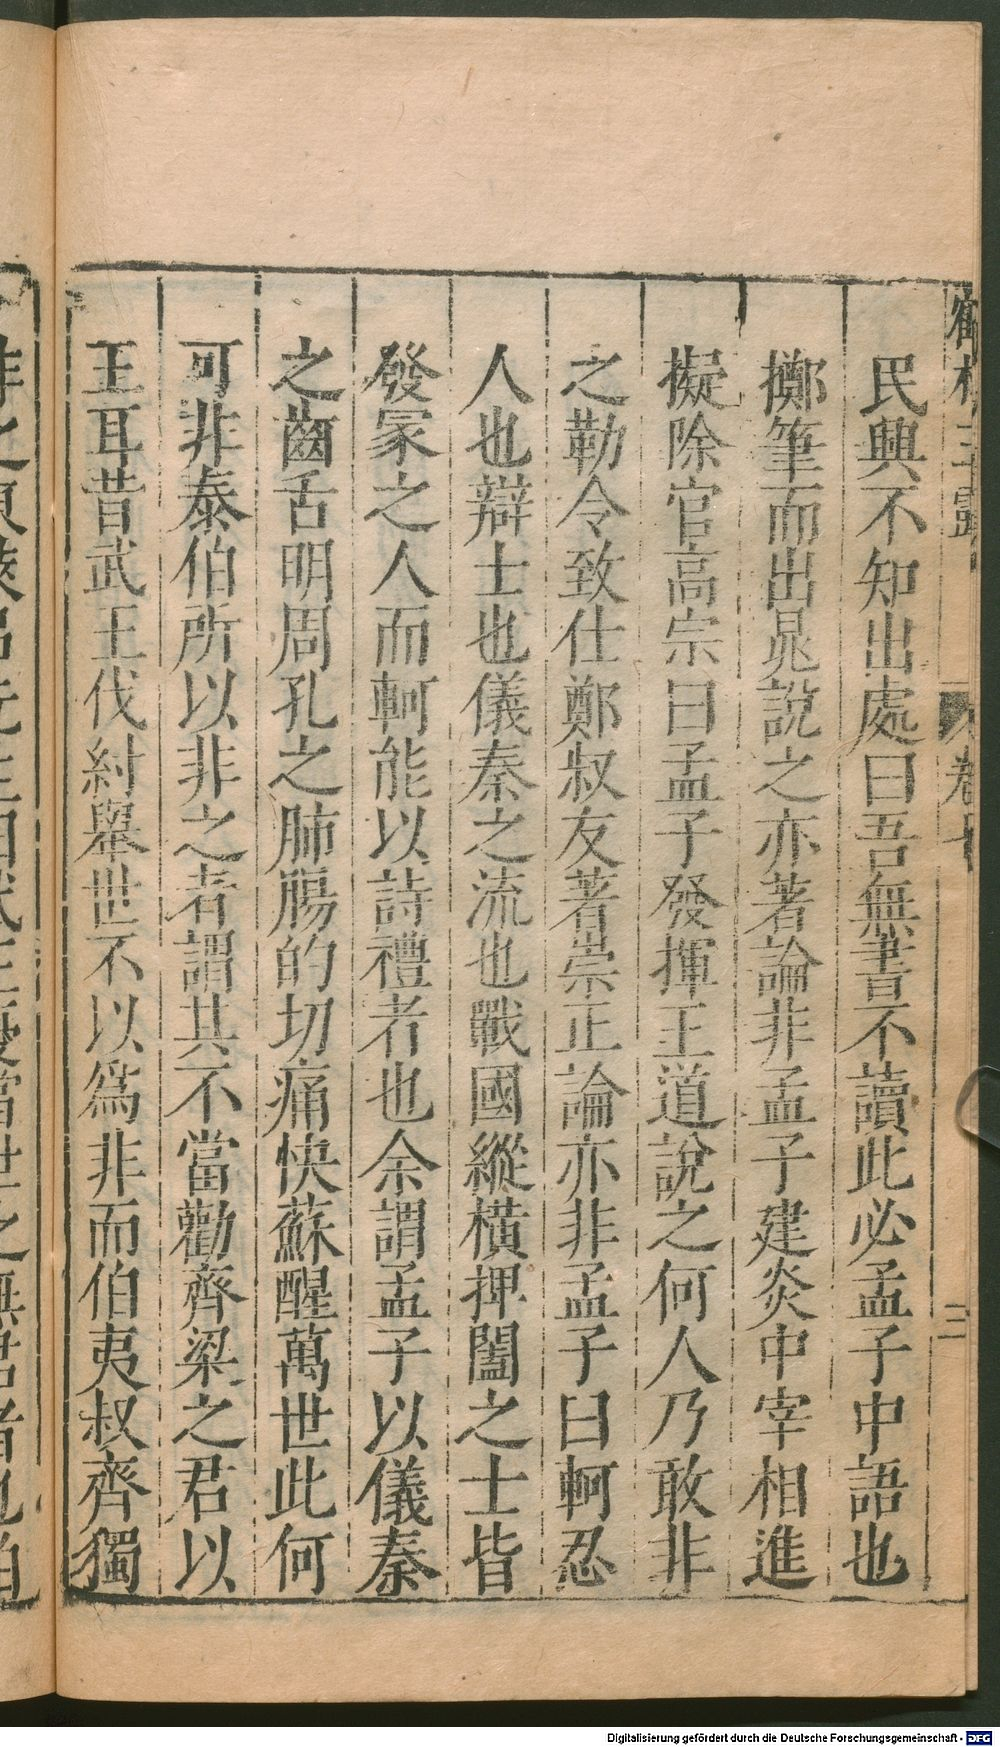 鶴林玉露
卷七
三
民興不知出處曰吾無書不讀此必孟子中語也
擲筆而出晁說之亦著論非孟子建炎中宰相進
擬除官高宗曰孟子發揮王道說之何人乃敢非
之勒令致仕鄭叔友著崇正論亦非孟子曰軻忍
人也辯士也儀秦之流也戰國縱橫押闔之士皆
發冢之人而軻能以詩禮者也余謂孟子以儀秦
之齒舌明周孔之肺膓的切痛快蘇醒萬世此何
可非泰伯所以非之者謂其不當勸齊梁之君以
王耳昔武王伐紂舉世不以爲非而伯夷叔齊獨
Digitalisierung gefördert durch die Deutsche Forschungsgemeinschaft - DFG